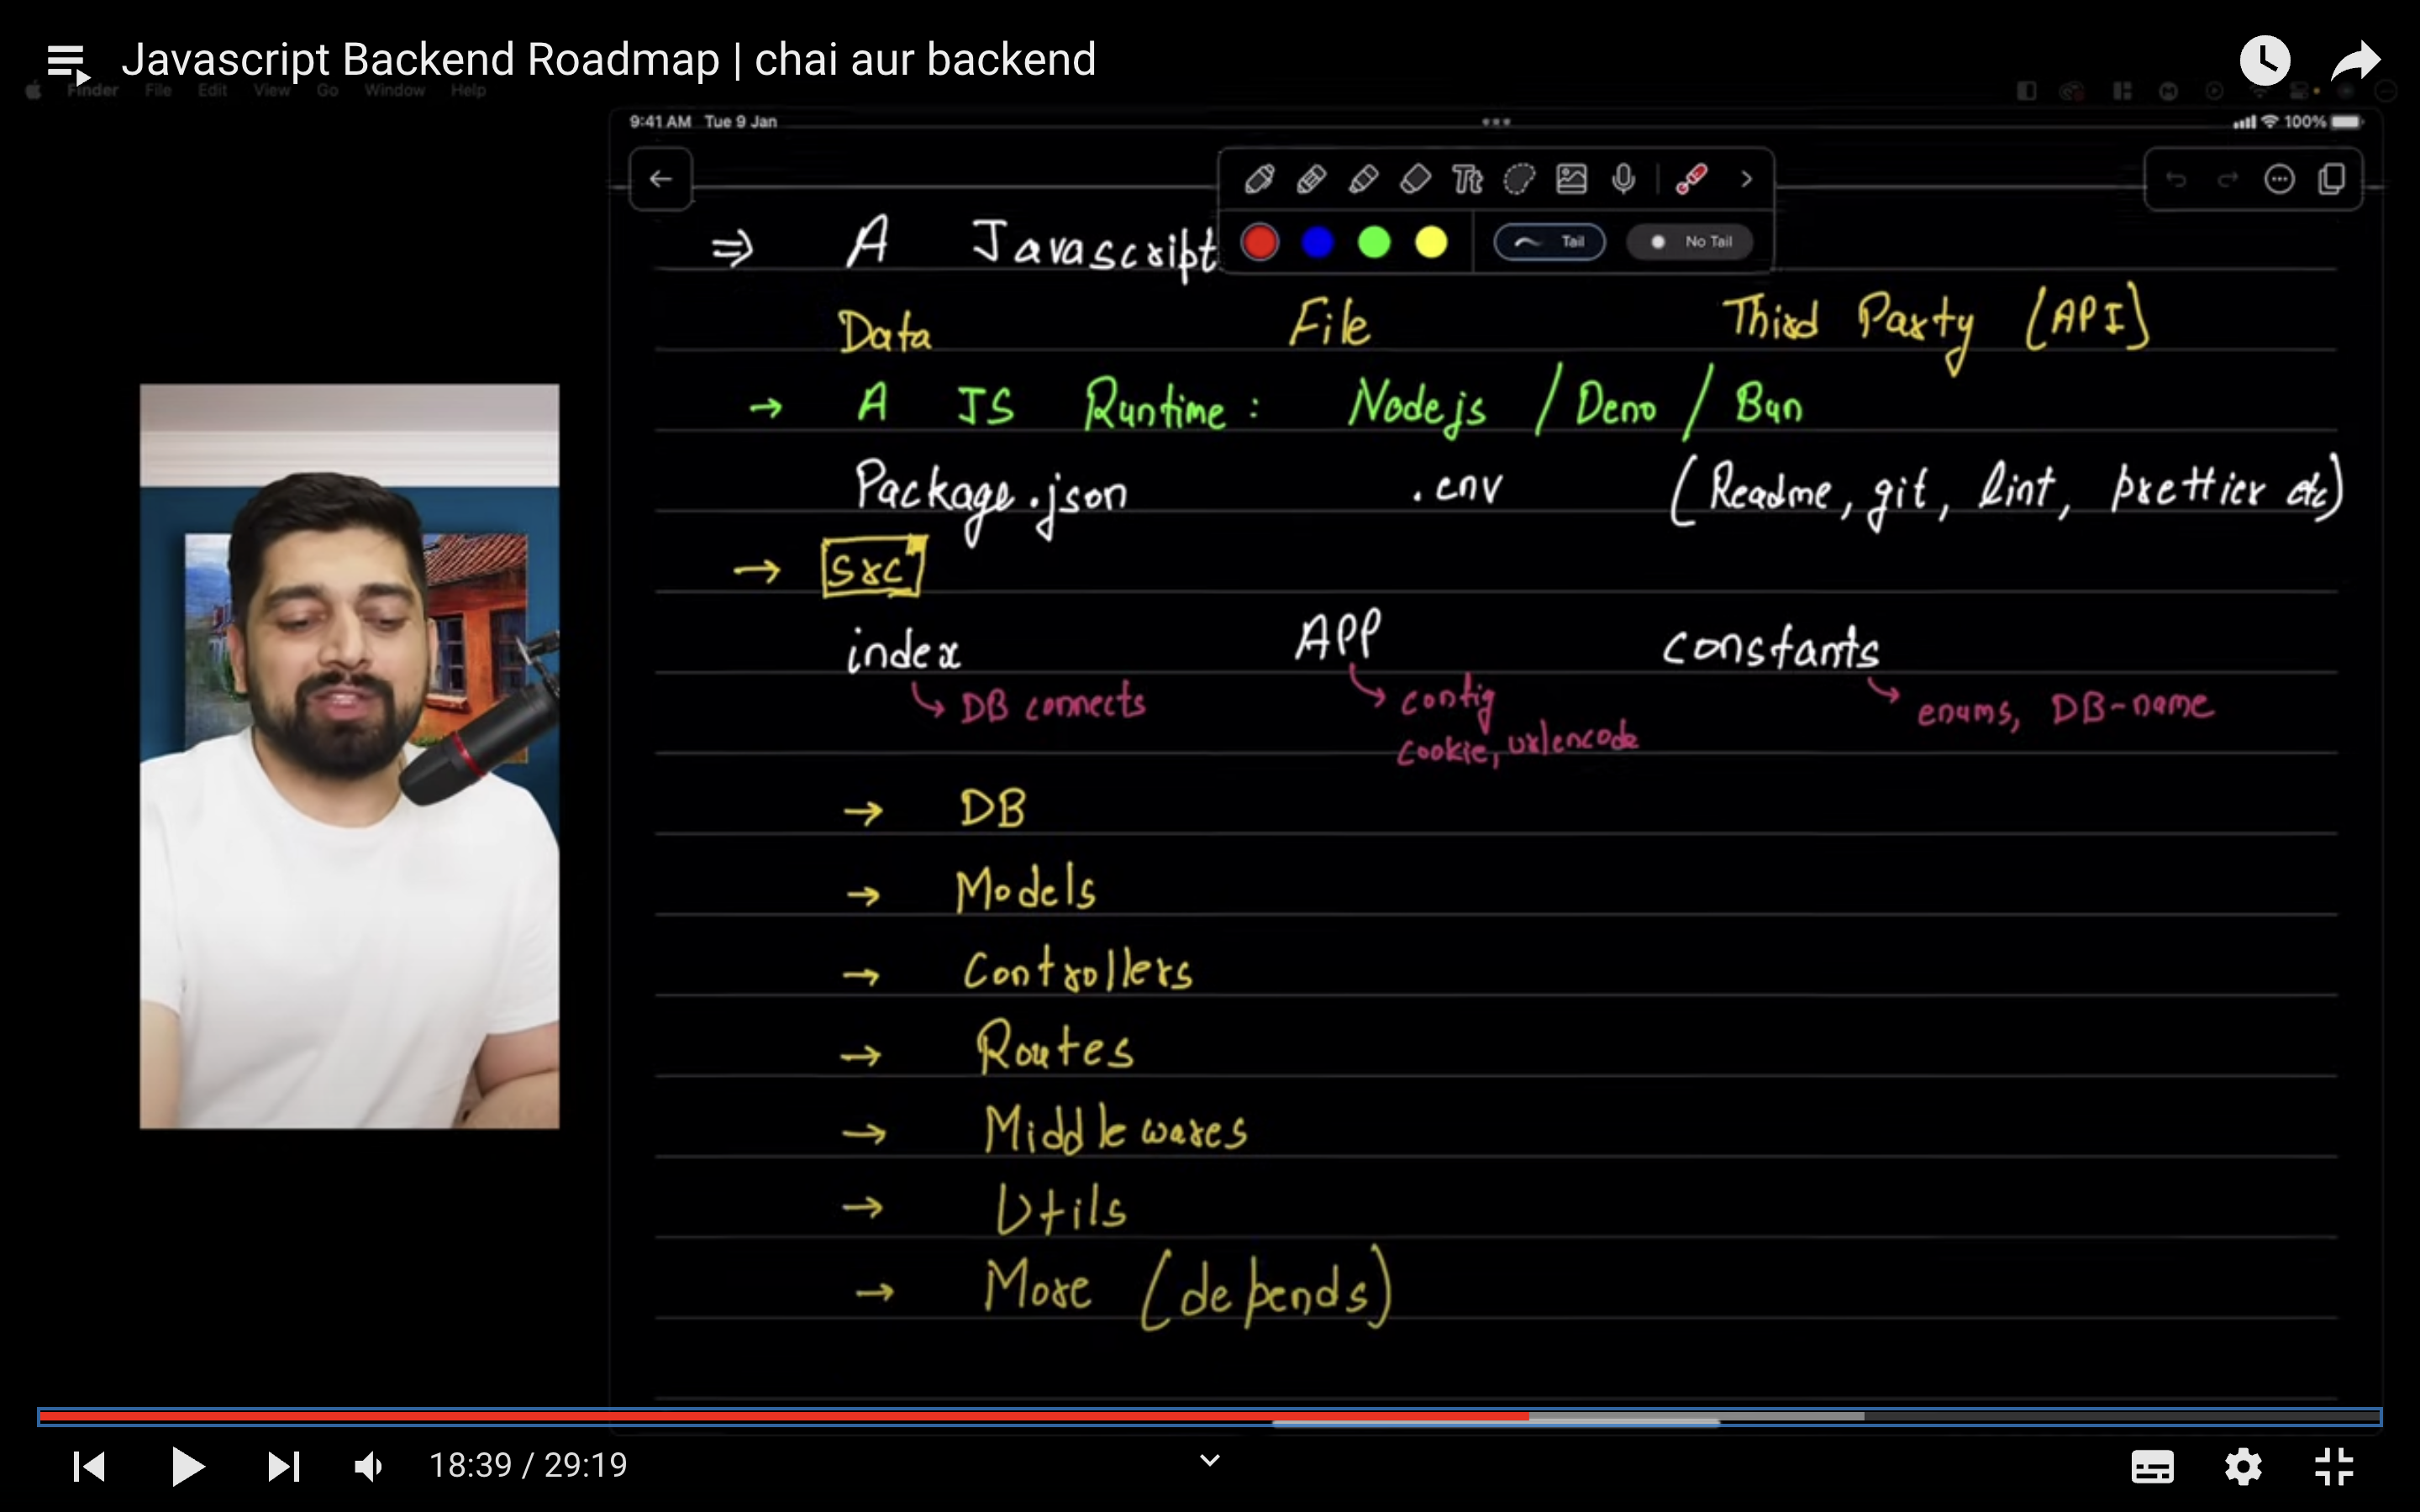 Javascript Backend Roadmap | chai aur backend
Finder File Edit View Go Window Help
9:41 AM Tue 9 Jan
100%
Tt
Tail No Tail
⇒ A Javascript
Data File Third Party (API)
→ A JS Runtime : Nodejs / Deno / Bun
Package.json .env (Readme, git, lint, prettier etc)
→ src
index APP constants
↳ DB connects ↳ config ↳ enums, DB-name
cookie, urlencode
→ DB
→ Models
→ Controllers
→ Routes
→ Middlewares
→ Utils
→ More (depends)
18:39 / 29:19